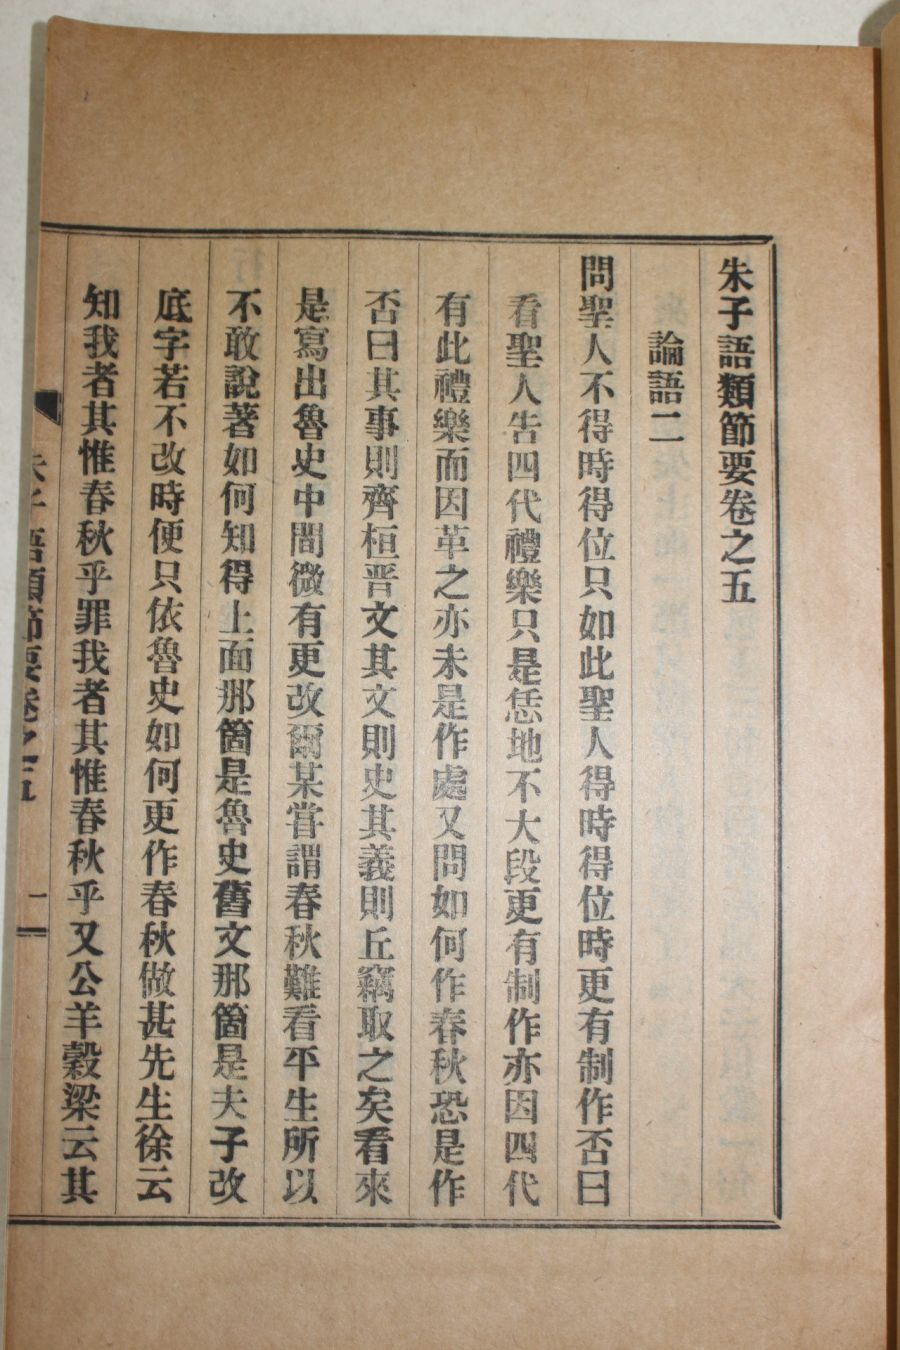 朱子語類節要卷之五
論語二
問聖人不得時得位只如此聖人得時得位時更有制作否曰
看聖人告四代禮樂只是恁地不大段更有制作亦因四代
有此禮樂而因革之亦未是作處又問如何作春秋恐是作
否曰其事則齊桓晋文其文則史其義則丘竊取之矣看來
是寫出魯史中間微有更改爾某嘗謂春秋難看平生所以
不敢說著如何知得上面那箇是魯史舊文那箇是夫子改
底字若不改時便只依魯史如何更作春秋做甚先生徐云
知我者其惟春秋乎罪我者其惟春秋乎又公羊穀梁云其
朱子語類節要卷之五 一